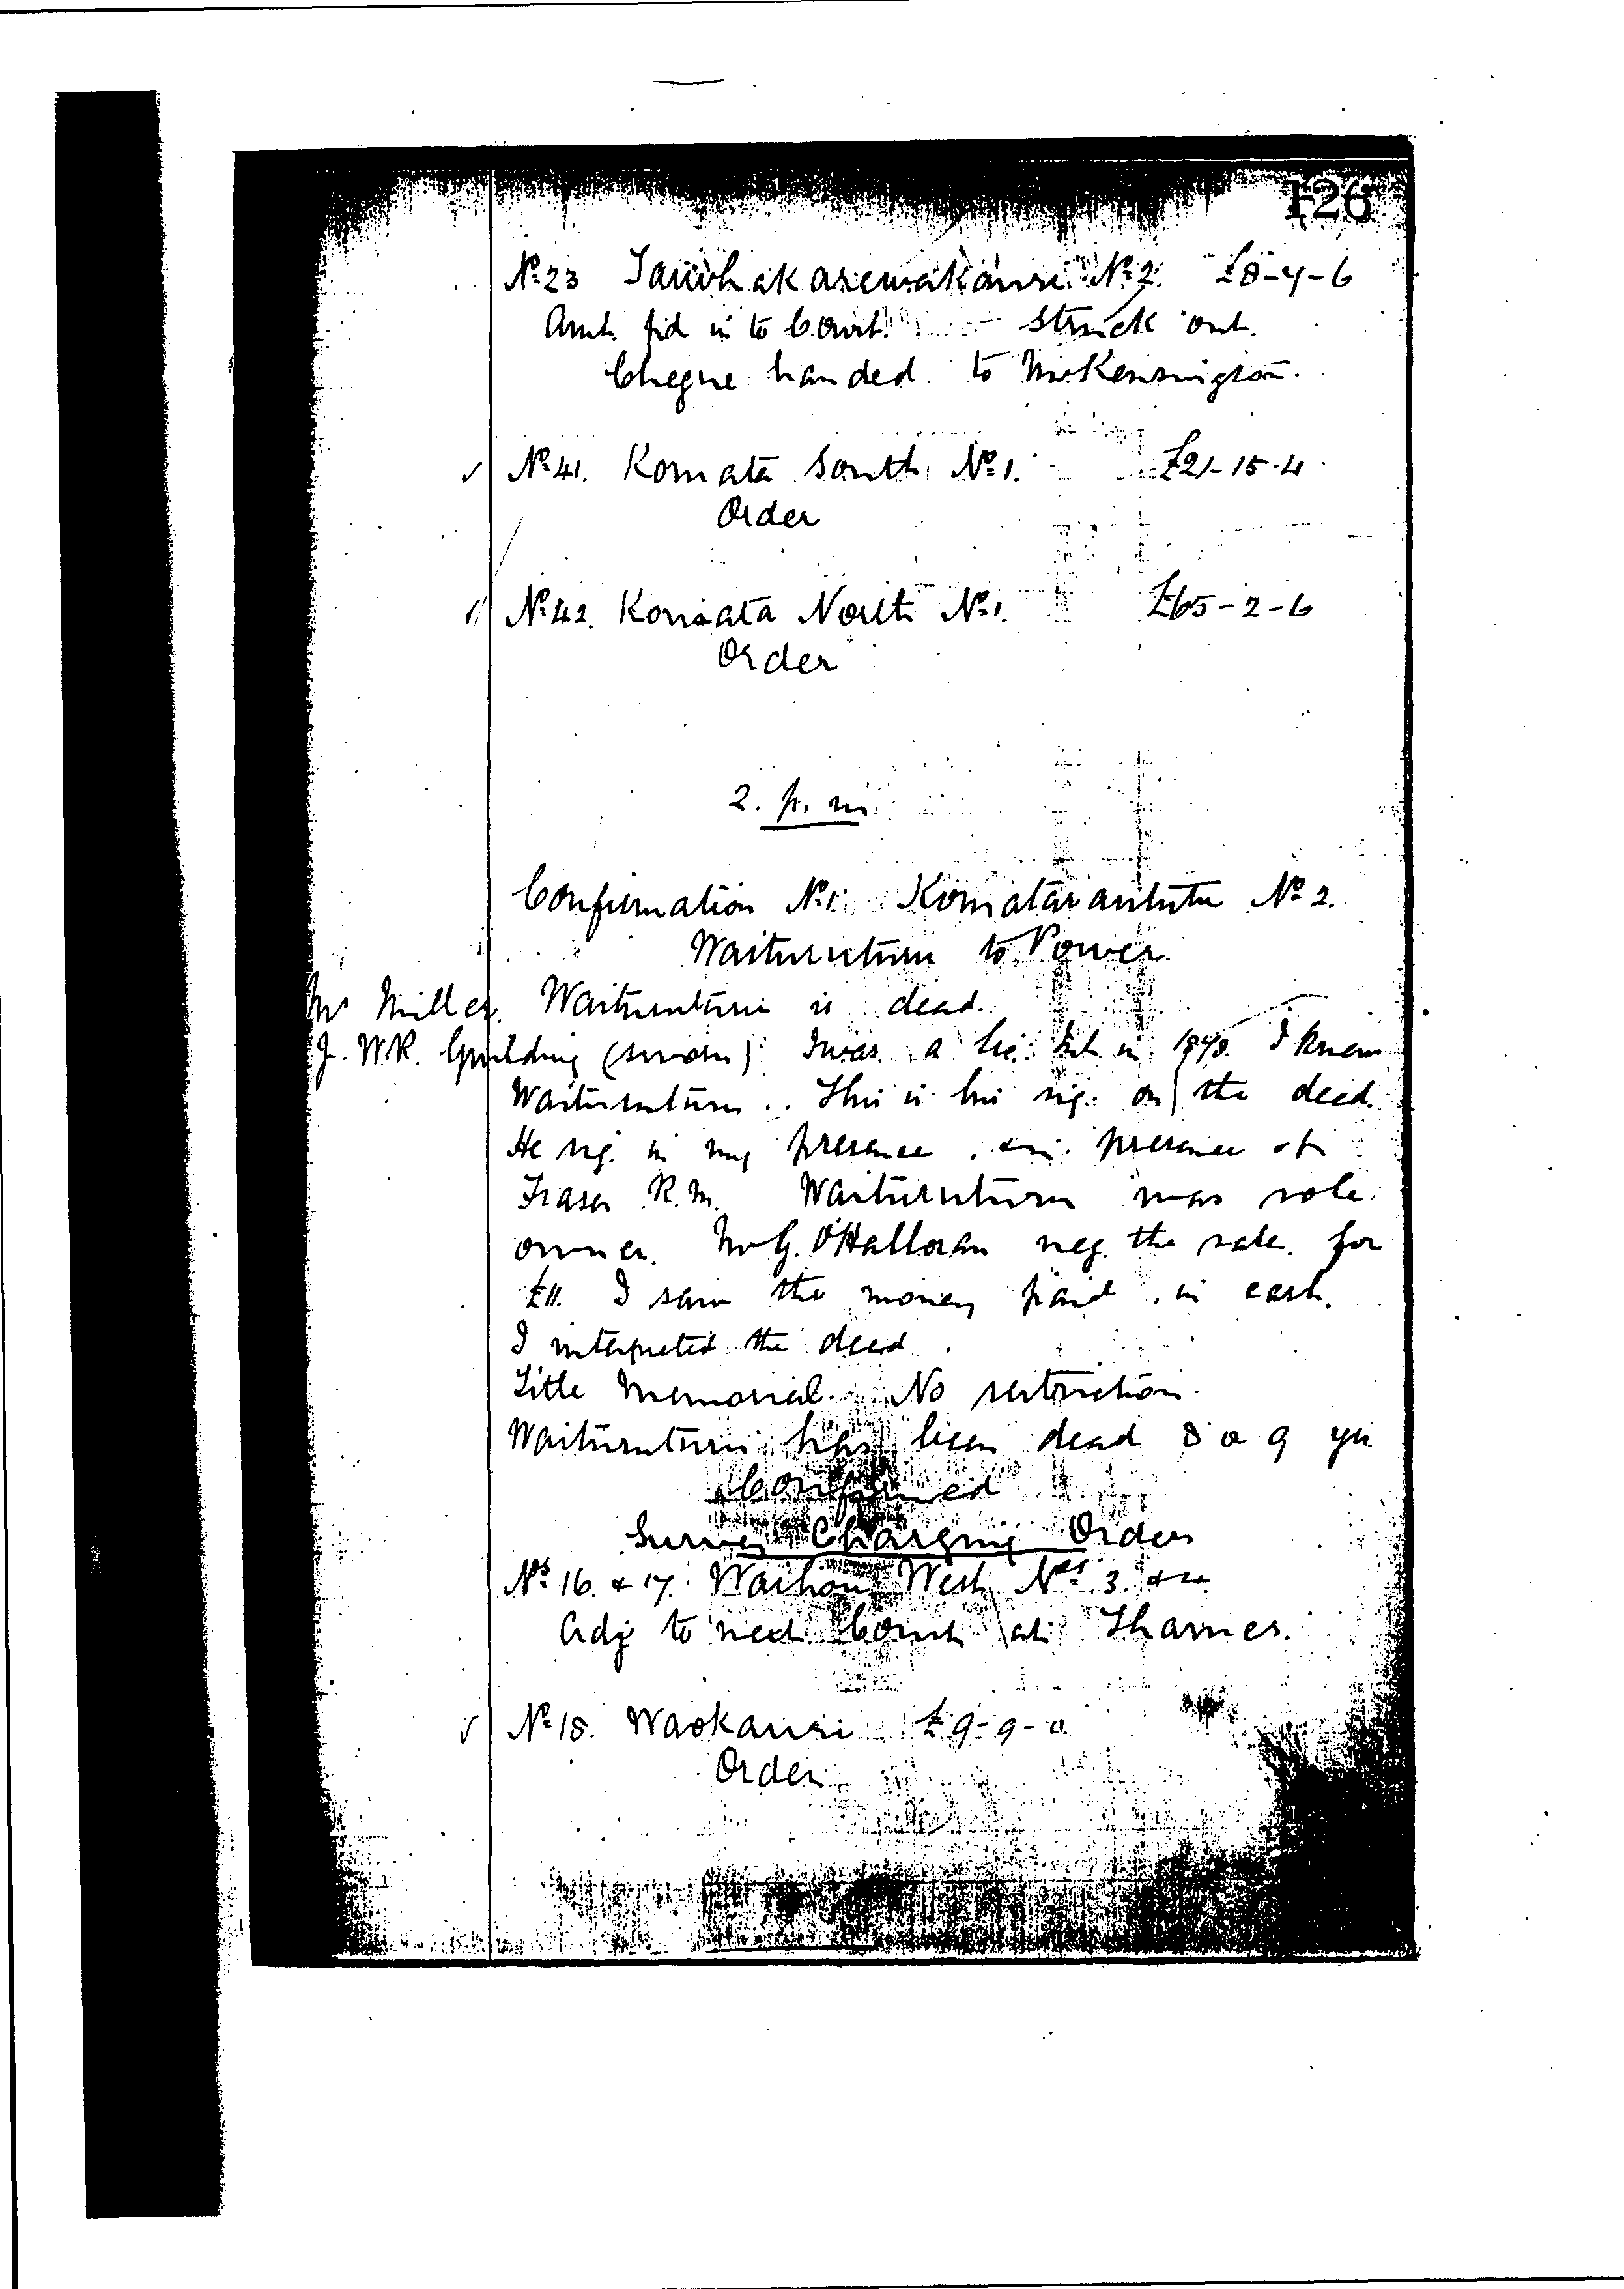 126
No 23 Tauwhakarewakauri No 2. £8-7-6
Amt. pd in to Court. struck out.
Cheque handed to Mr Kensington.
No 41. Komata South No 1. £21-15-4
Order
No 42. Komata North No 1. £65-2-6
Order
2. p. m.
Confirmation No 1. Komataraututu No 2.
Waitururturu to Power.
Mr Miller. Waituruturu is dead.
J. W. R. Guilding (sworn) I was a lic. Int. in 1878. I knew
Waituruturu. This is his sig. on the deed.
He sig. in my presence, & in presence of
Fraser R.M. Waituruturu was sole
owner. Mr G. O'Halloran neg. the sale. for
£11. I saw the money paid, in cash.
I interpreted the deed.
Title Memorial. No restriction.
Waituruturu has been dead 8 or 9 yrs
Confirmed
Survey Charging Orders
Nos 16. & 17. Waihou West Nos 3. & 4.
Adj to next Court at Thames.
No 18. Waokauri £9-9-0
Order